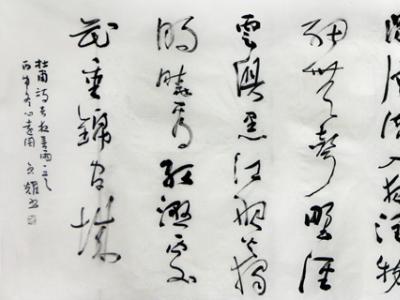 隨風潛入夜潤物
細無聲野徑
雲俱黑江船火獨
明曉看紅濕處
花重錦官城
杜甫詩春夜喜雨
丙申冬心遠